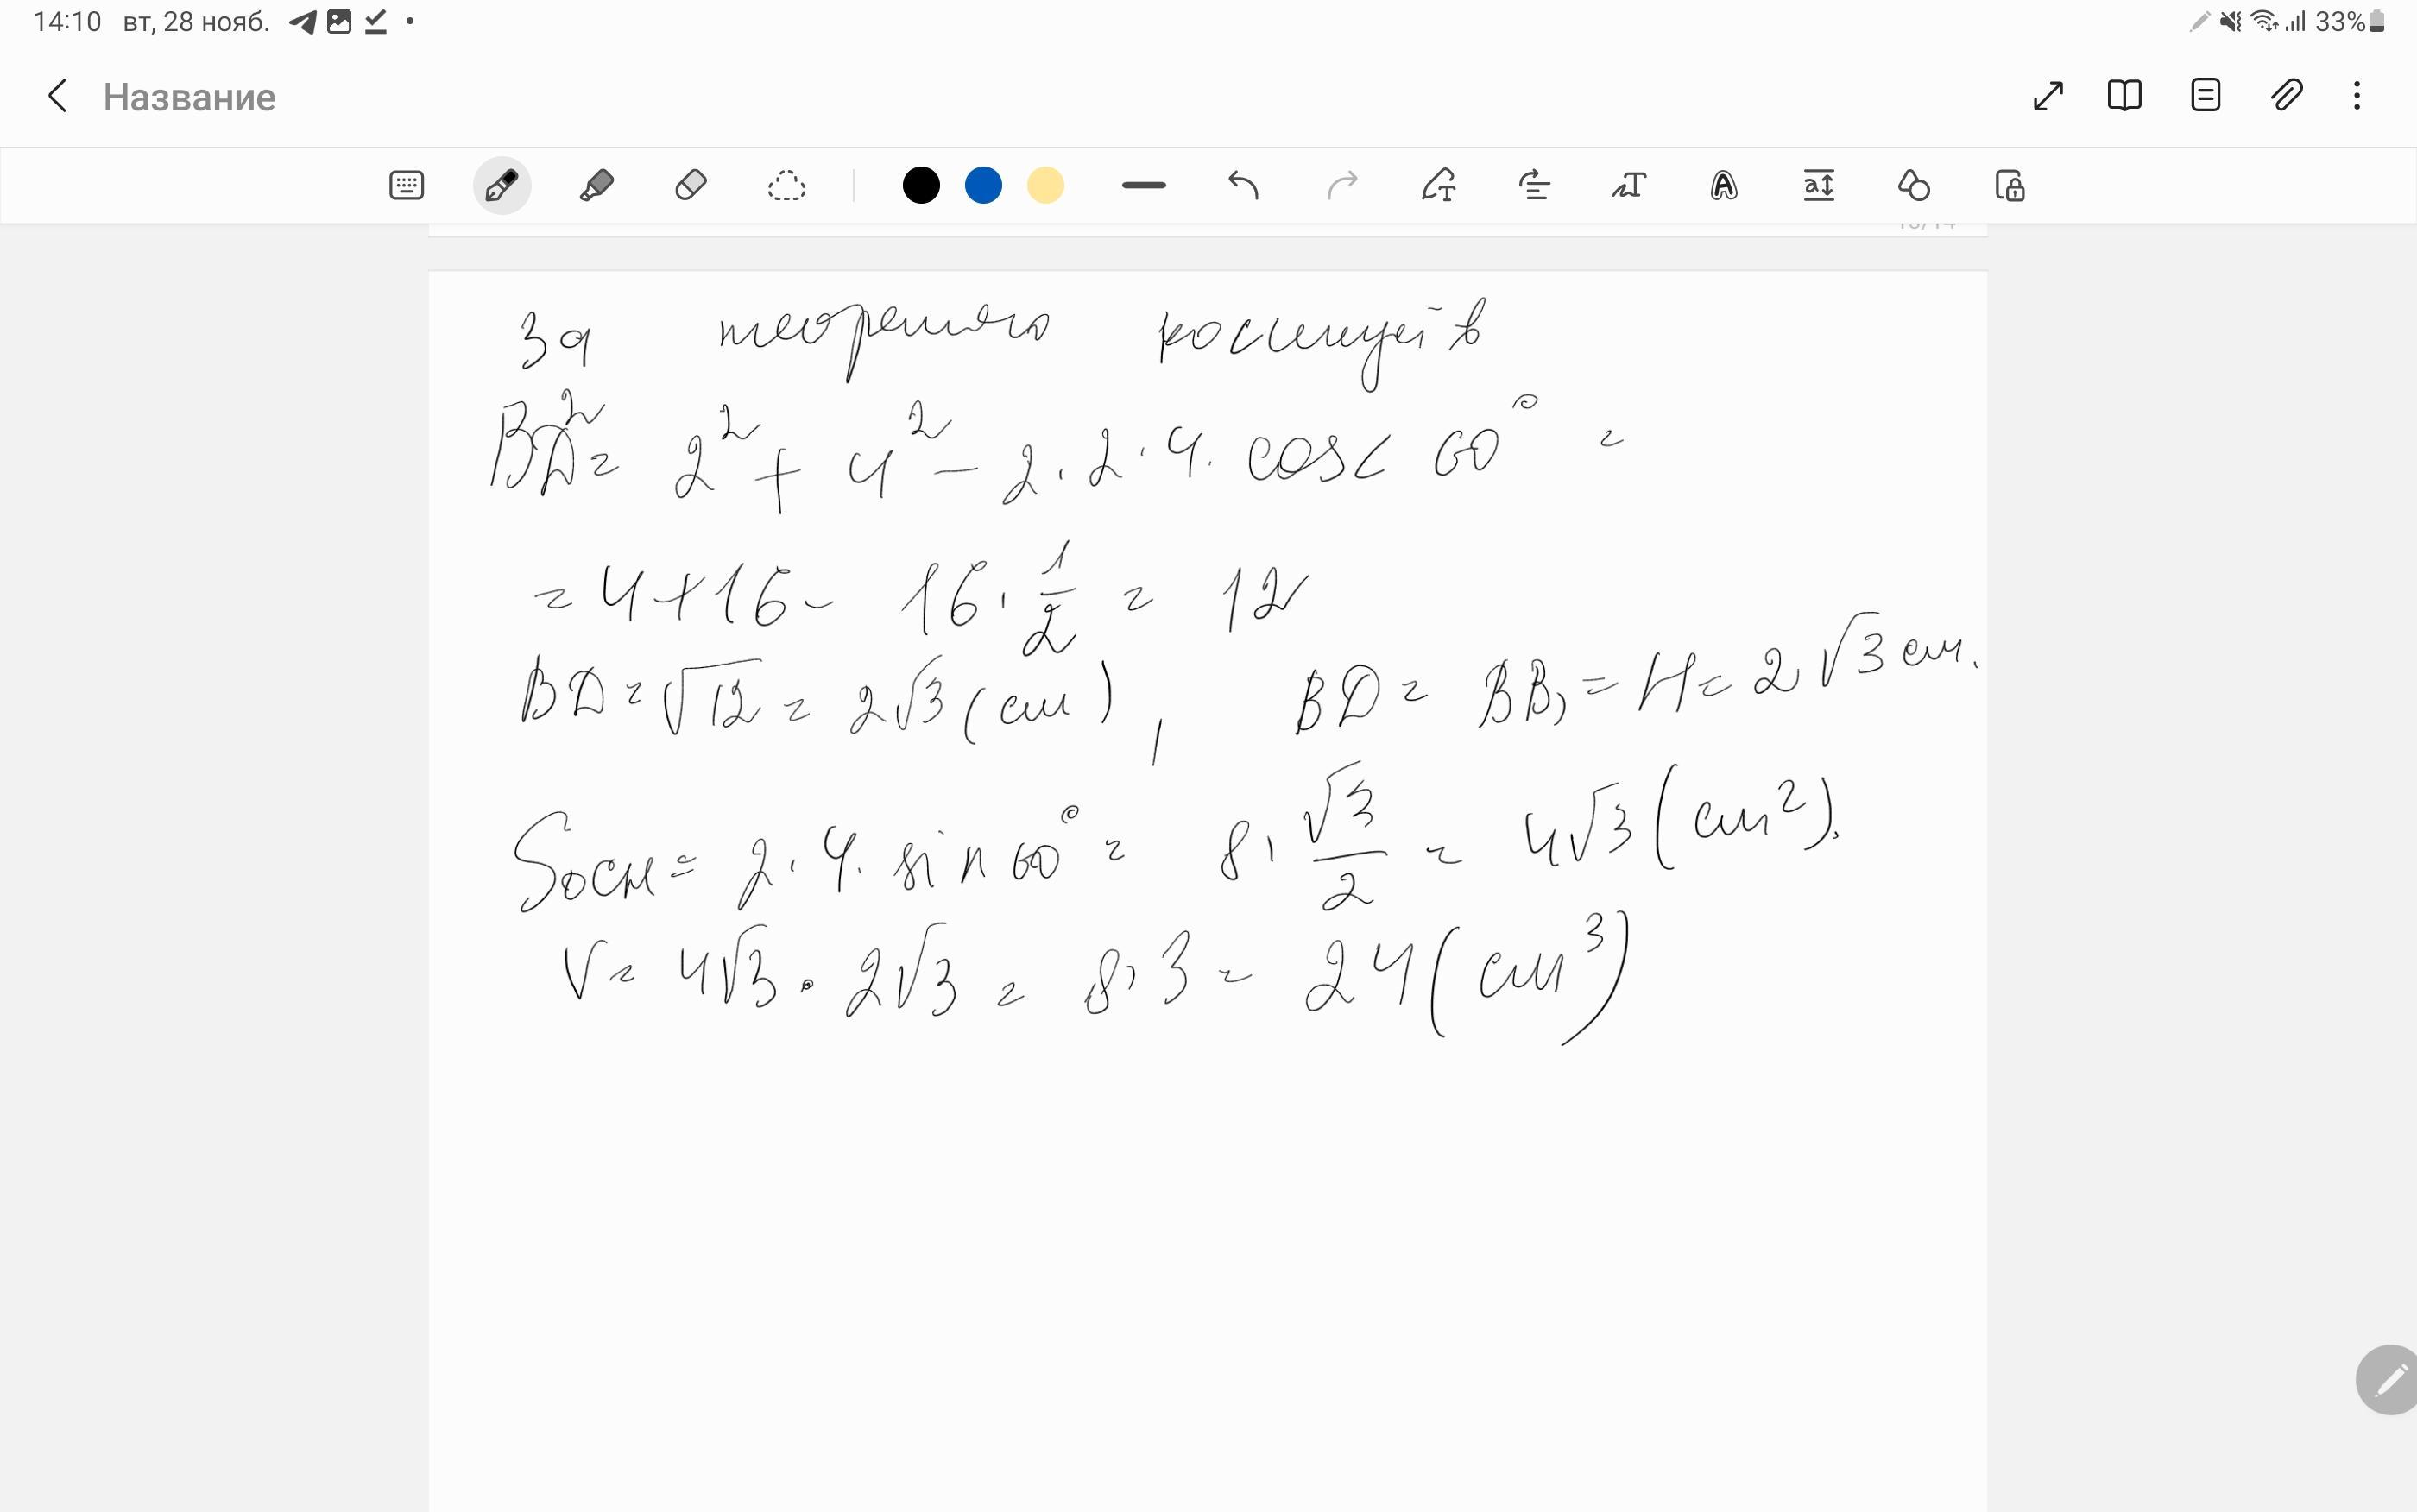 14:10 вт, 28 нояб. 33%
Название
За теоремою косинусів
BD² = 2² + 4² - 2·2·4·cos< 60° =
= 4+16 - 16·1/2 = 12
BD = √12 = 2√3 (см), BD = BB₁ = H = 2√3 см.
Sосн = 2·4·sin 60° = 8·√3/2 = 4√3 (см²).
V = 4√3 · 2√3 = 8·3 = 24 (см³)